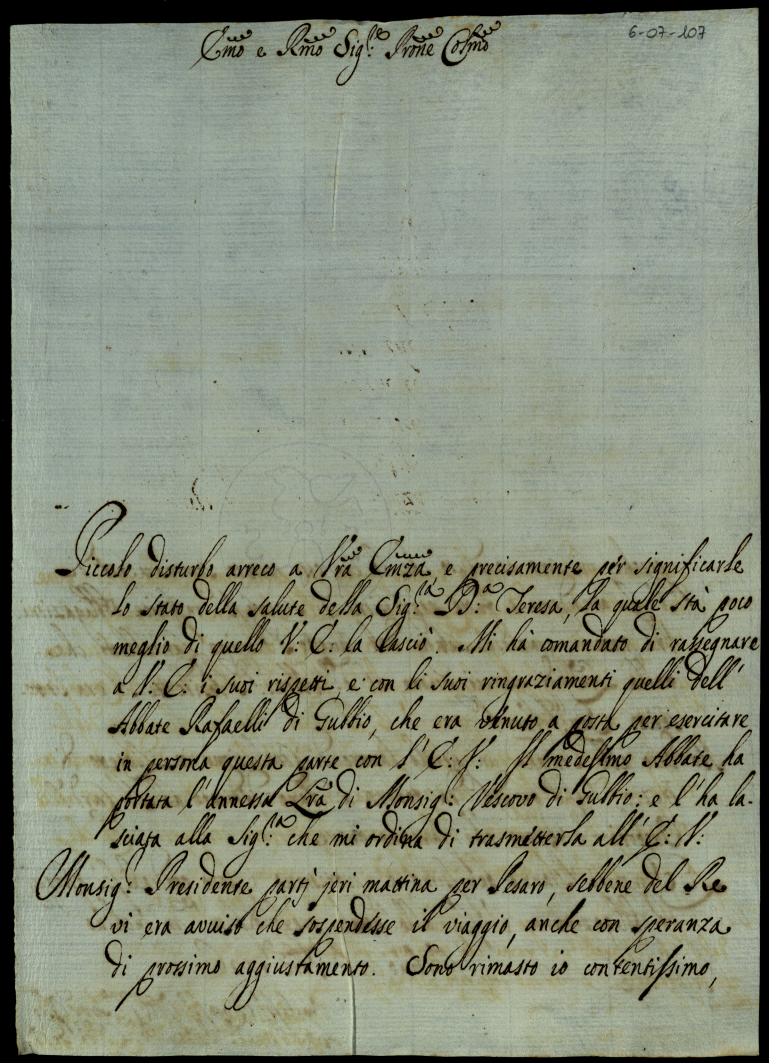 Emo e Rmo Sig.re Prone Colmo
6-07-107
Piccolo disturbo arreco a Vra Emza, e precisamente per significarle
lo stato della salute della Sig.ra D.a Teresa, la quale stà poco
meglio di quello V: E: la lasciò. Mi hà comandato di rassegnare
a V: E: i suoi rispetti, e con li suoi ringraziamenti quelli dell'
Abbate Rafaelli di Gubbio, che era venuto a posta per esercitare
in persona questa parte con l'E: V: Il medesimo Abbate ha
portata l'annessa Lra di Monsig.r Vescovo di Gubbio; e l'ha la-
sciata alla Sig.ra che mi ordina di trasmetterla all'E: V:
Monsig.r Presidente partì jeri mattina per Pesaro, sebbene del Re
vi era avviso che sospendesse il viaggio, anche con speranza
di prossimo aggiustamento. Sono rimasto io contentissimo,